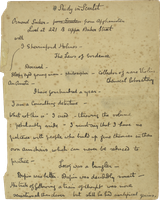 A Study in Scarlet
Ormond Sacker - from Soudan from Afghanistan
Lived at 221 B Upper Baker Street
with
I Sherrinford Holmes -
The Laws of Evidence
Reserved -
sleepy eyed young man - philosopher - Collector of rare Violins
An Amati - Chemical laboratory
I have four hundred a year -
I am a Consulting detective -
What rot this is" I cried - throwing the volume
petulantly aside
I
have no
patience with people who build up fine theories in their
own armchairs which can never be reduced to
practice -
Lecoq was a bungler -
Dupin was better. Dupin was decidedly smart -
His trick of following a train of thought was more
sensational than clever but still he had analytical genius.